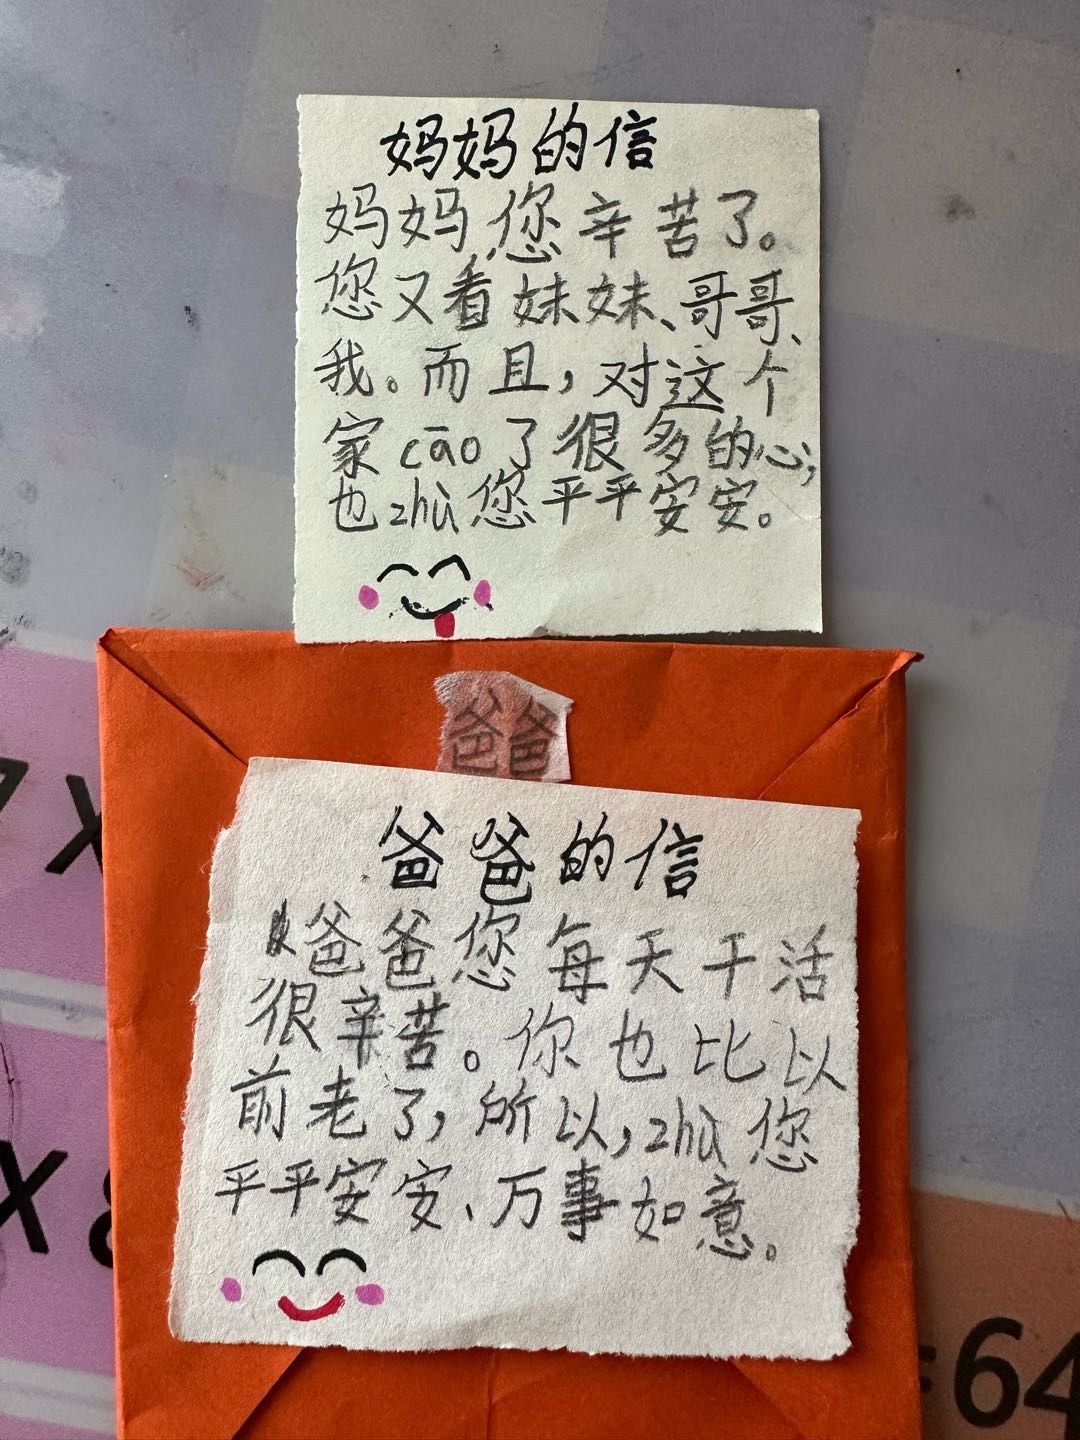 妈妈的信
妈妈您辛苦了。
您又看妹妹、哥哥、
我。而且，对这个
家cāo了很多的心，
也zhù您平平安安。
爸爸
爸爸的信
爸爸您每天干活
很辛苦。你也比以
前老了，所以，zhù您
平平安安、万事如意。
7×
×8
=64